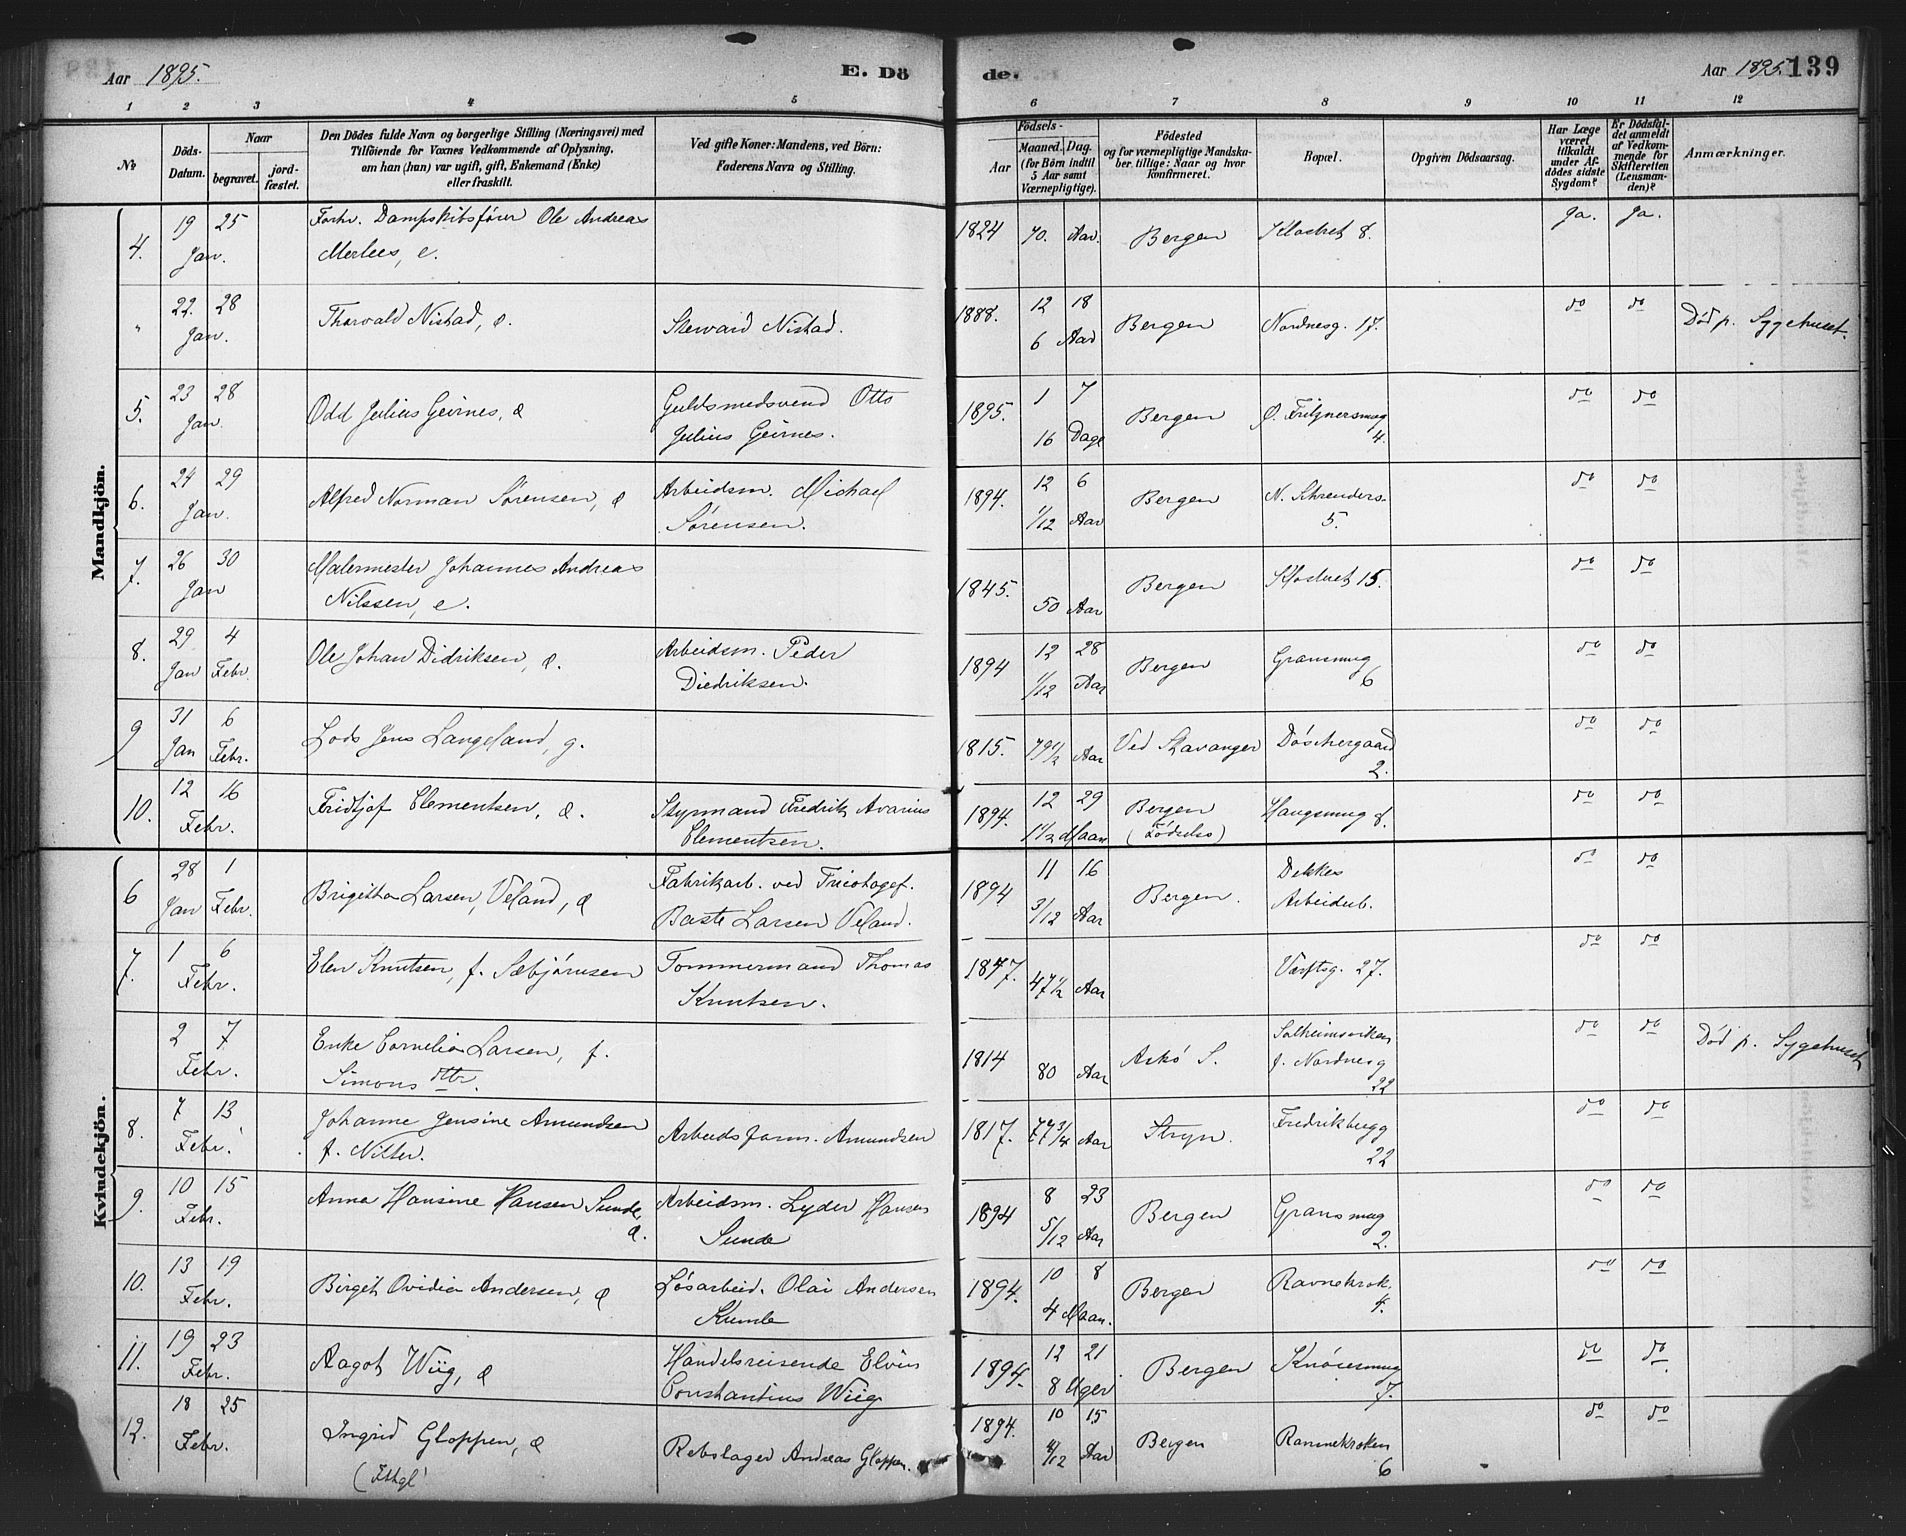 Aar 1895. E. Dö de. Aar 1895. 139
1 2 3 4 5 6 7 8 9 10 11 12
No
Döds-Datum.
Naar
begravet.
jord-fæstet.
Den Dödes fulde Navn og borgerlige Stilling (Næringsvei) med
Tilföiende for Voxnes Vedkommende af Oplysning,
om han (hun) var ugift, gift, Enkemand (Enke)
eller fraskilt.
Ved gifte Koner: Mandens, ved Börn:
Faderens Navn og Stilling.
Födsels-
Aar
Maaned. Dag.
(for Börn indtil
5 Aar samt
Værnepligtige).
Födested
og for værnepligtige Mandska-
ber tillige: Naar og hvor
konfirmeret.
Bopæl.
Opgiven Dödsaarsag.
Har Læge
været
tilkaldt
under Af-
dödes sidste
Sygdom?
Er Dödsfal-
det anmeldt
af Vedkom-
mende for
Skifteretten
(Lensman-
den)?
Anmærkninger.
Mandkjön.
4. 19 Jan. 25 Forhv. Dampskibsfører Ole Andreas
Merlees, e. 1824 70. Aar. Bergen Klostret 8. Ja. Ja.
" 22. Jan. 28 Thorvald Nistad, d. Steward Nistad. 1888. 12 18
6 Aar Bergen Nordnesg. 17. do do Død p. Sygehuset.
5. 23 Jan. 28 Odd Julius Geirnes, d Guldsmedsvend Otto
Julius Geirnes. 1895. 1 7
16 Dage Bergen Ø. Fritznersmug
4. do do
6. 24 Jan. 29 Alfred Norman Sørensen, d Arbeidsm. Michael
Sørensen. 1894. 12 6
1/12 Aar Bergen N. Strenders.
5. do do
7. 26 Jan 30 Malermester Johannes Andreas
Nilssen, e. 1845. 50 Aar Bergen Klostret 15. do do
8. 29 Jan 4 Febr. Ole Johan Didriksen, d. Arbeidsm. Peder
Diedriksen. 1894 12 28
1/12 Aar Bergen Gransmug
6 do do
9 31 Jan 6 Febr. Lods Jens Langeland, g. 1815. 79 1/2 Aar Ved Stavanger Döschergaard
2. do do
10. 12 16 Febr. Fridtjof Clementsen, d. Styrmand Fredrik Avarius
Clementsen. 1894. 12 29
1 1/2 Maan Bergen
(Fødselss) Haugsmug 8. do do
Kvindekjön.
6 28 Jan 1 Febr. Brigitha Larsen, Veland, d Fabrikarb. ved Tricotagef.
Baste Larsen Veland. 1894 11 16
3/12 Aar Bergen. Dekkes
Arbeiderb. do do
7. 1 6 Febr. Elen Knutsen, f. Sæbjørnsen Tømmermand Thomas
Knutsen. 1847. 47 1/2 Aar Værftsg. 27. do do
2 7 Febr. Enke Cornelia Larsen, f.
Simonsdtr. 1814 80 Aar Askø S. Solheimsviken
f. Nordnesg
22 do do Død p. Sygehuset
8. 7 13 Febr. Johanne Jensine Amundsen
f. Nitter. Arbeidsform. Amundsen 1817. 77 3/4 Aar Stryn. Fredriksbergg
22 do do
9. 10 15 Febr. Anna Hansine Hansen Sunde,
d. Arbeidsm. Lyder Hansen
Sunde 1894 8 23
5/12 Aar Bergen Gransmug
2. do do
10. 13 19 Febr. Birgit Ovidia Andersen, d Løsarbeid. Olai Andersen
Kumle 1894. 10 8
4 Maan. Bergen Ravnekrok.
4. do do
11. 19 23 Febr. Aagot Wiig, d Handelsreisende Elvin
Constantius Wiig 1894. 12 21
8 Uger Bergen Knösesmug
7. do do
12. 18 25 Febr. Ingrid Gloppen, d Rebslager Andreas Gloppen. 1894. 10 15
4/12 Aar Bergen Ravnekroken
6 do do